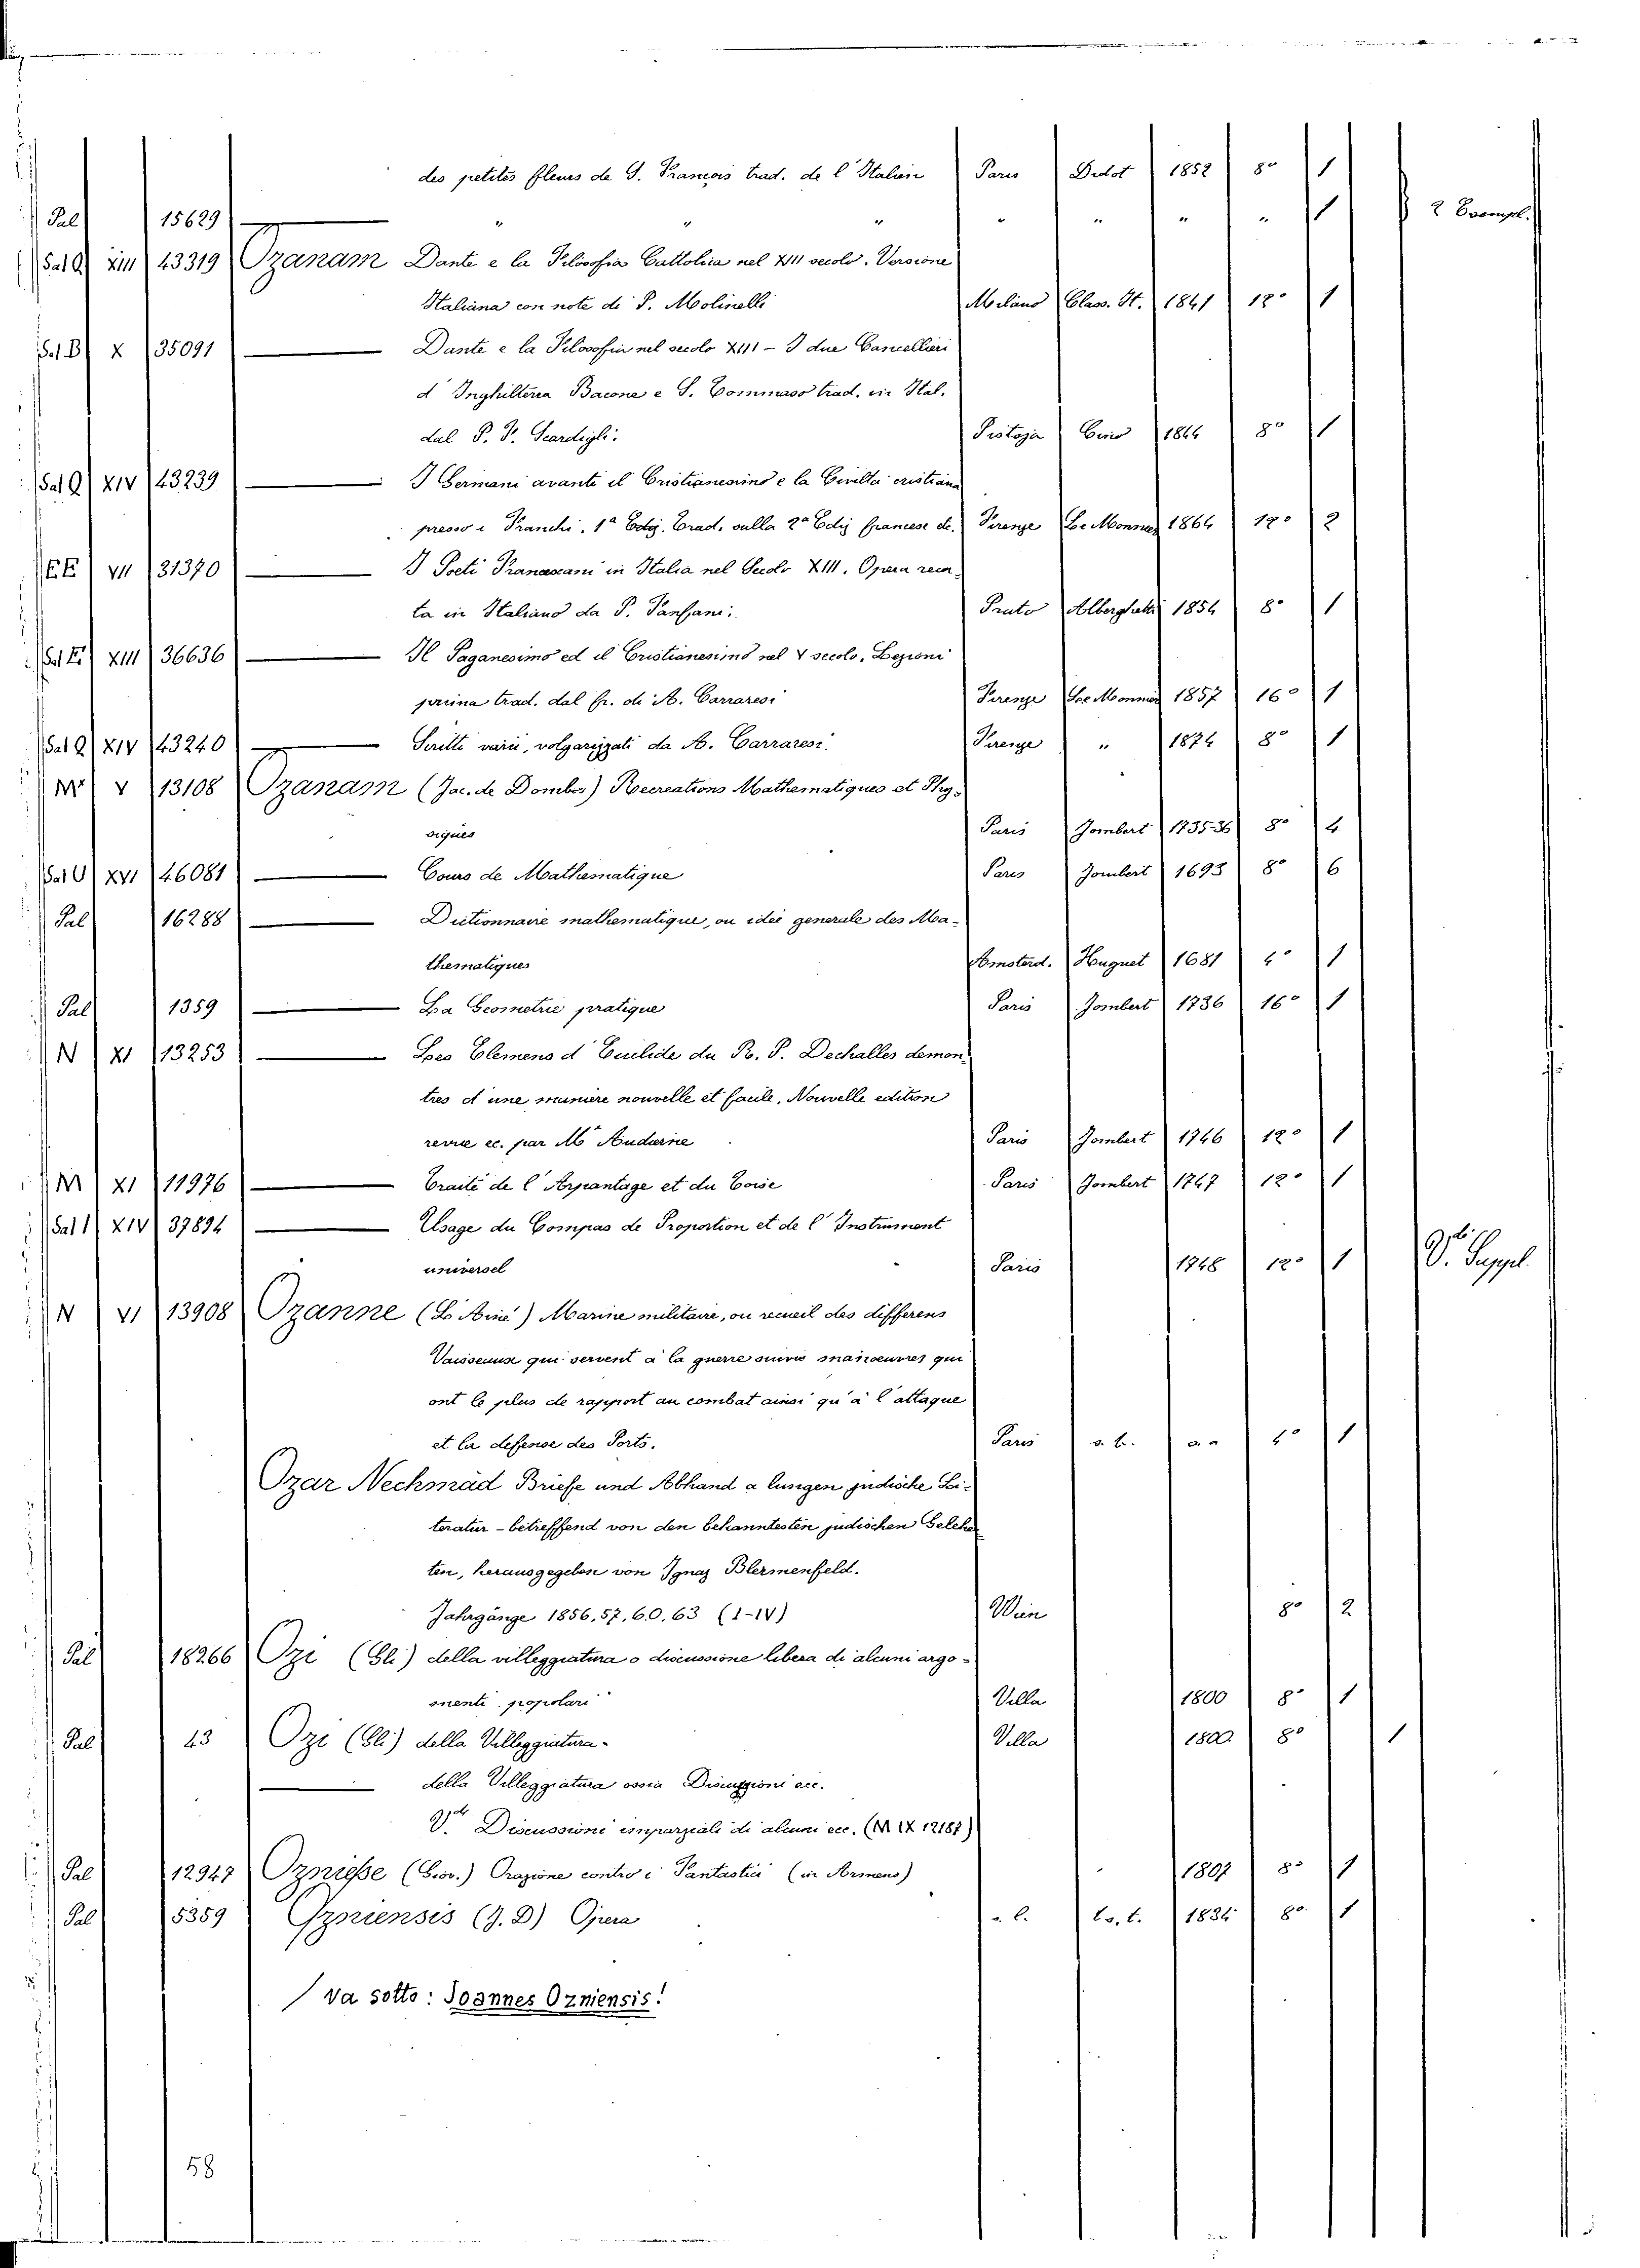 des petites fleurs de S. François trad. de l'Italien Paris Didot 1852 8° 1
Pal 15629 " " " " " " " 1 2 Exempl.
Sal Q XIII 43319 Ozanam Dante e la Filosofia Cattolica nel XIII secolo. Versione
Italiana con note di P. Molinelli Milano Class. It. 1841 12° 1
Sal B X 35091 — Dante e la Filosofia nel secolo XIII – I due Cancellieri
d'Inghilterra Bacone e S. Tommaso trad. in Ital.
dal P. F. Scardigli. Pistoja Cino 1844 8° 1
Sal Q XIV 43239 — I Germani avanti il Cristianesimo e la Civiltà cristiana
presso i Franchi. 1ª Ediz. Trad. sulla 2ª Ediz francese di. Firenze Le Monnier 1864 12° 2
EE VII 31370 — I Poeti Francescani in Italia nel Secolo XIII. Opera reca
ta in Italiano da P. Fanfani. Prato Alberghetti 1854 8° 1
Sal E XIII 36636 — Il Paganesimo ed il Cristianesimo nel V secolo, Lezioni
prima trad. dal fr. di A. Carraresi Firenze Le Monnier 1857 16° 1
Sal Q XIV 43240 — Scritti varii, volgarizzati da A. Carraresi. Firenze " 1874 8° 1
M V 13108 Ozanam (Jac. de Dombes) Recreations Mathematiques et Phy-
siques Paris Jombert 1735-36 8° 4
Sal U XVI 46081 — Cours de Mathematique Paris Jombert 1693 8° 6
Pal 16288 — Dictionnaire mathematique, ou idée generale des Ma-
thematiques Amsterd. Huguet 1681 4° 1
Pal 1359 — La Geometrie pratique Paris Jombert 1736 16° 1
N XI 13253 — Les Elemens d'Euclide du R. P. Dechalles demon-
tres d'une maniere nouvelle et facile, Nouvelle edition
revue ec. par M Audierne Paris Jombert 1746 12° 1
M XI 11976 — Traité de l'Arpentage et du Toisé Paris Jombert 1747 12° 1
Sal 1 XIV 37894 — Usage du Compas de Proportion et de l'Instrument
universel Paris 1748 12° 1 V. Suppl.
N VI 13908 Ozanne (L'Ainé) Marine militaire, ou recueil des differens
Vaisseaux qui servent à la guerre suivis manoeuvres qui
ont le plus de rapport au combat ainsi qu'à l'attaque
et la defense des Ports. Paris s. t. s. a 4° 1
Ozar Nechmád Briefe und Abhand a lungen jüdische Li-
teratur – betreffend von den bekanntesten jüdischen Gelehr
ten, herausgegeben von Ignaz Blermenfeld.
Jahrgänge 1856, 57, 60, 63 (I-IV) Wien 8° 2
Pal 18266 Ozi (Gli) della villeggiatura o discussione libera di alcuni argo-
menti popolari Villa 1800 8° 1
Pal 43 Ozi (Gli) della Villeggiatura. Villa 1800 8° 1
— della Villeggiatura ossia Discussioni ecc.
V. Discussioni imparziali di alcuni ecc. (M IX 12187)
Pal 12947 Ozniesse (Giov.) Orazione contro i Fantastici (in Armeno) 1807 8° 1
Pal 5359 Ozniensis (J. D) Opera s. l. s. t. 1834 8° 1
va sotto: Joannes Ozniensis!
58